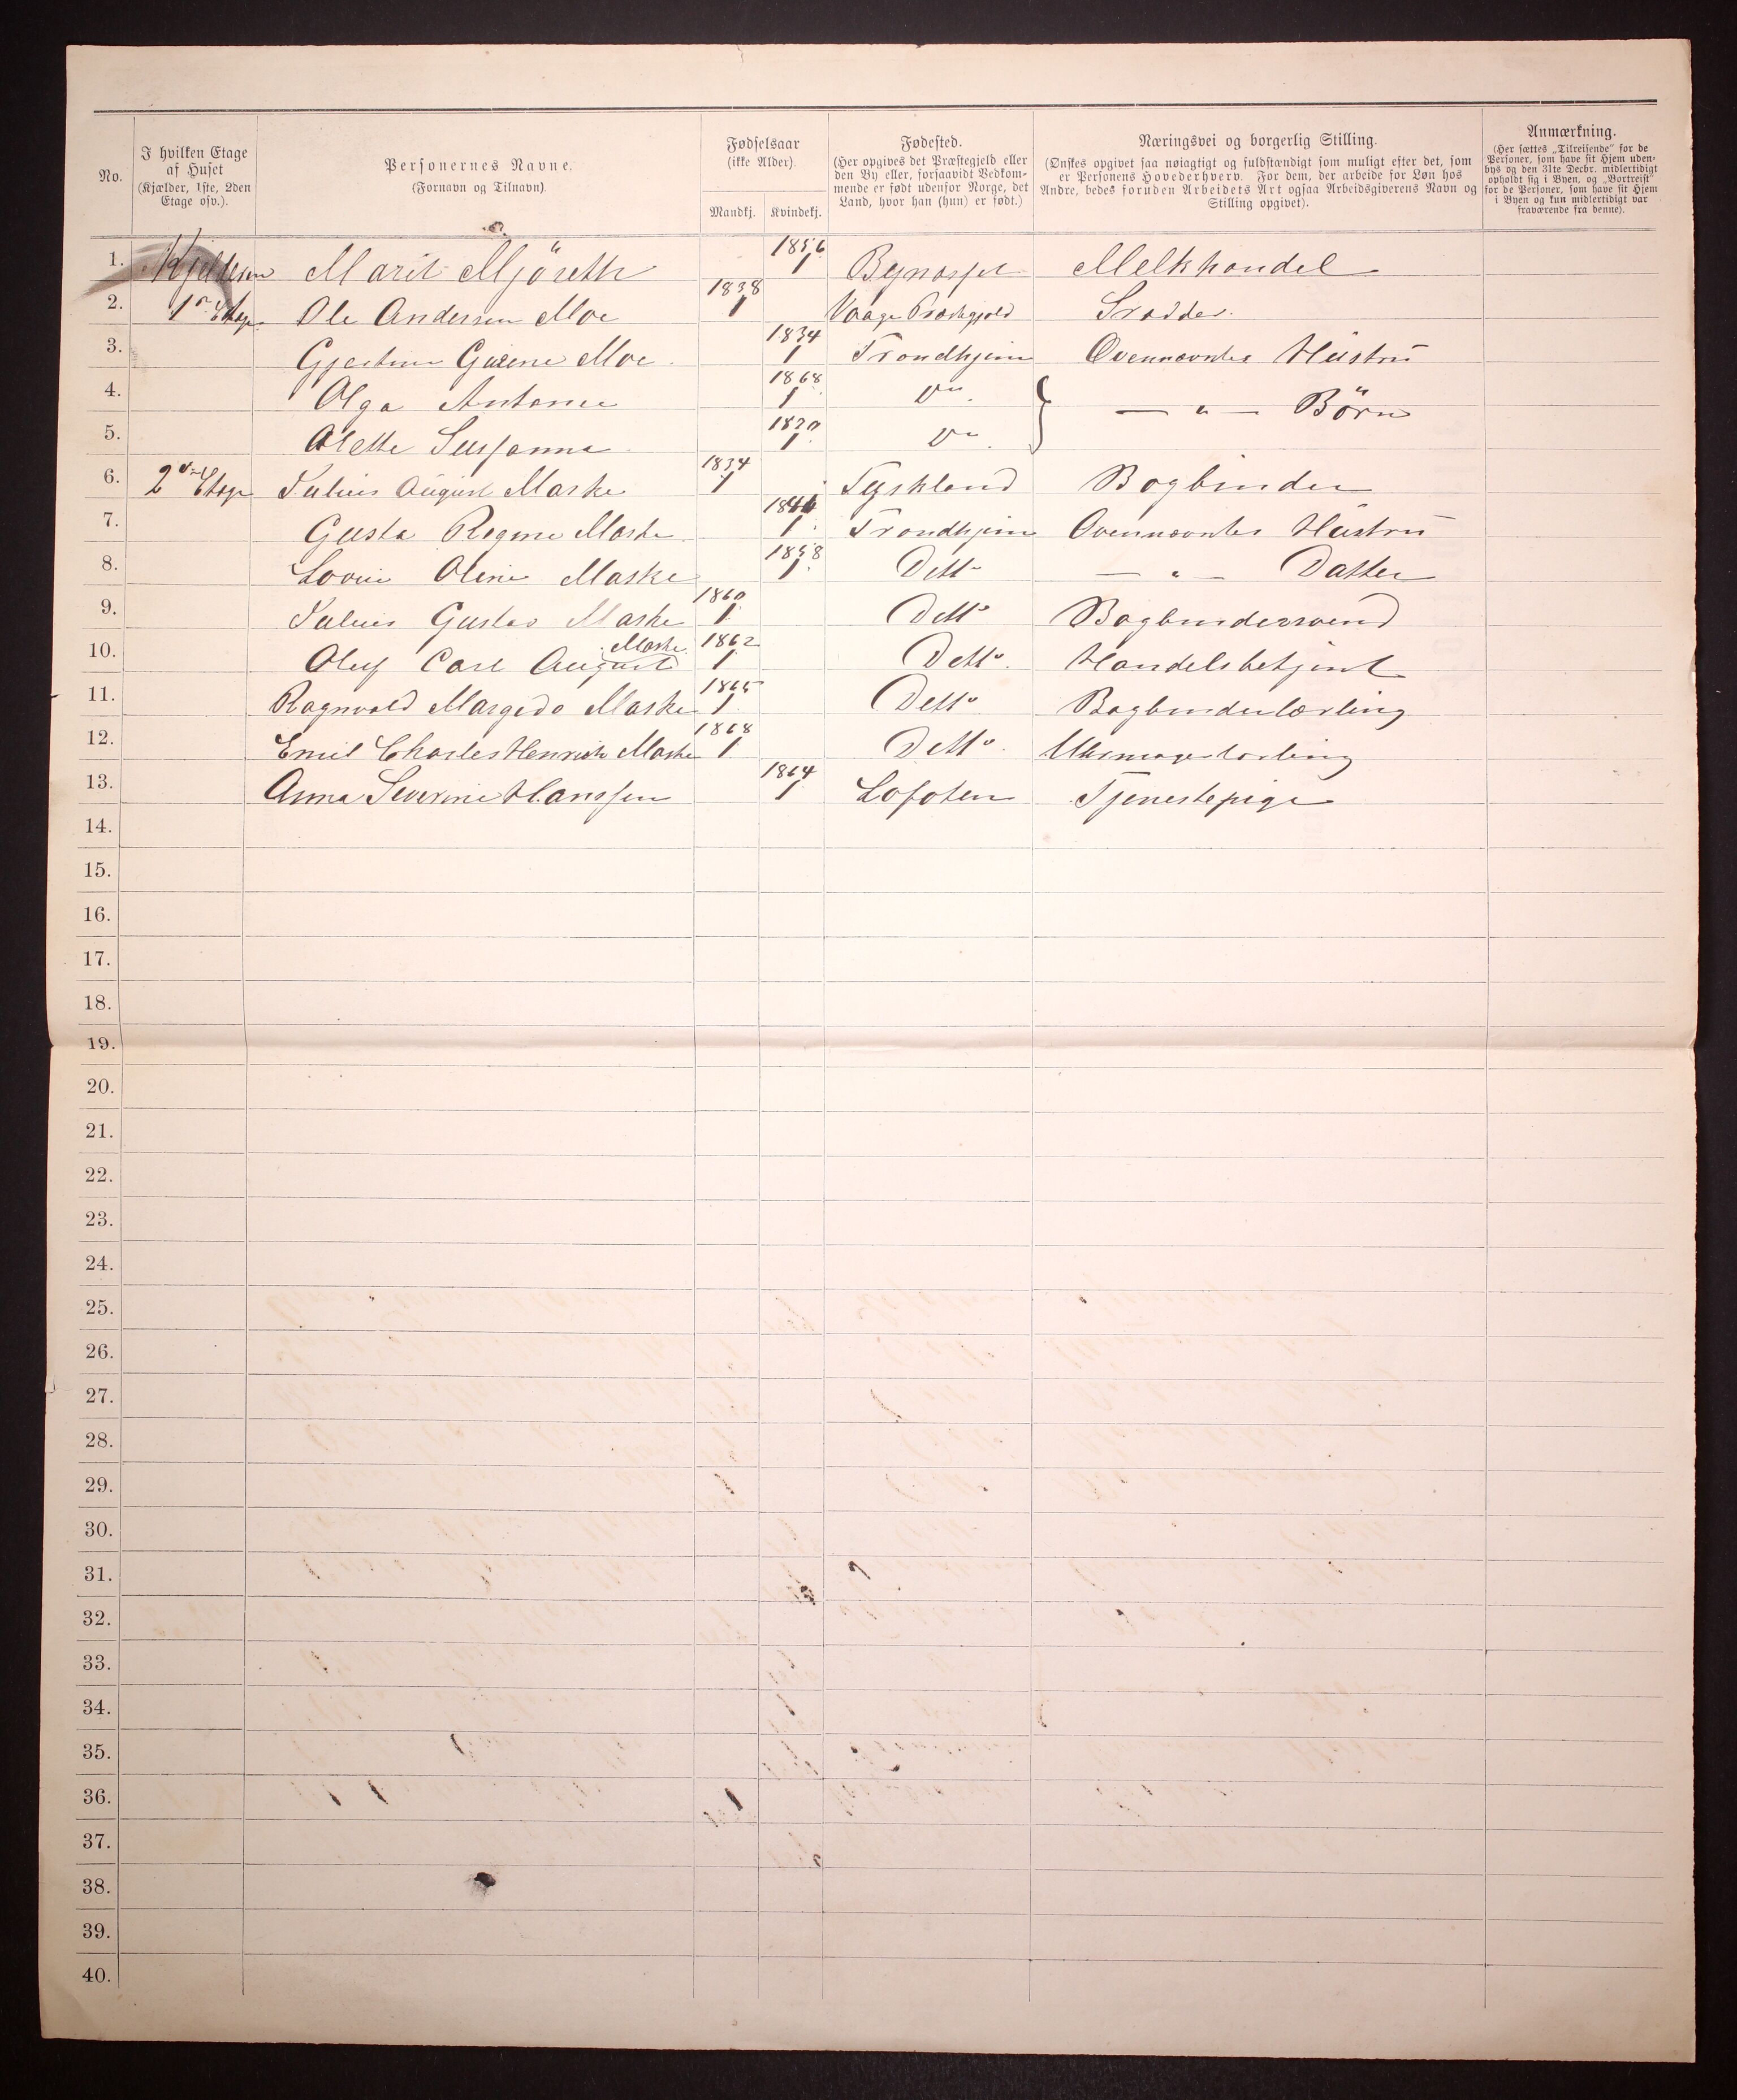 No.
I hvilken Etage af Huset (Kjælder, 1ste, 2den Etage osv.).
Personernes Navne. (Fornavn og Tilnavn).
Fødselsaar (ikke Alder).
Mandkj. Kvindekj.
Fødested. (Her opgives det Præstegjeld eller den By eller, forsaavidt Vedkommende er født udenfor Norge, det Land, hvor han (hun) er født.)
Næringsvei og borgerlig Stilling. (Ønskes opgivet saa nøiagtigt og fuldstændigt som muligt efter det, som er Personens Hovederhverv. For dem, der arbeide for Løn hos Andre, bedes foruden Arbeidets Art ogsaa Arbeidsgiverens Navn og Stilling opgivet).
Anmærkning. (Her sættes „Tilreisende" for de Personer, som have sit Hjem udenbys og den 31te Decbr. midlertidigt opholdt sig i Byen, og „Bortreist" for de Personer, som have sit Hjem i Byen og kun midlertidigt var fraværende fra denne).
1. Kjelderen Marit Mjöseth 1856 1 Bynæsset Melkhandel
2. 1ste Etage Ole Andersen Moe 1838 1 Vaage Præstegjeld Skrædder
3. Gurine Moe 1834 1 Trondhjem Ovennævntes Hustru
4. Olga Antonie 1868 1 Do } — " — Börn
5. Olette Sussanna 1870 1 Do
6. 2den Etage Julius August Maske 1834 1 Tyskland Bogbinder
7. Gusta Regine Maske 1 Trondhjem Ovennævntes Hustru
8. Lovise Oline Maske 1858 1 Detto — " — Datter
9. Julius Gustav Maske 1860 1 Detto Bogbindersvend
10. Oluf Carl August Maske 1862 1 Detto Handelsbetjent
11. Ragnvald Margido Maske 1865 1 Detto Bogbinderlærling
12. Emil Charles Henrich Maske 1868 1 Detto Uhrmagerlærling
13. Anna Severine Hanssen 1864 1 Lofoten Tjenestepige
14.
15.
16.
17.
18.
19.
20.
21.
22.
23.
24.
25.
26.
27.
28.
29.
30.
31.
32.
33.
34.
35.
36.
37.
38.
39.
40.